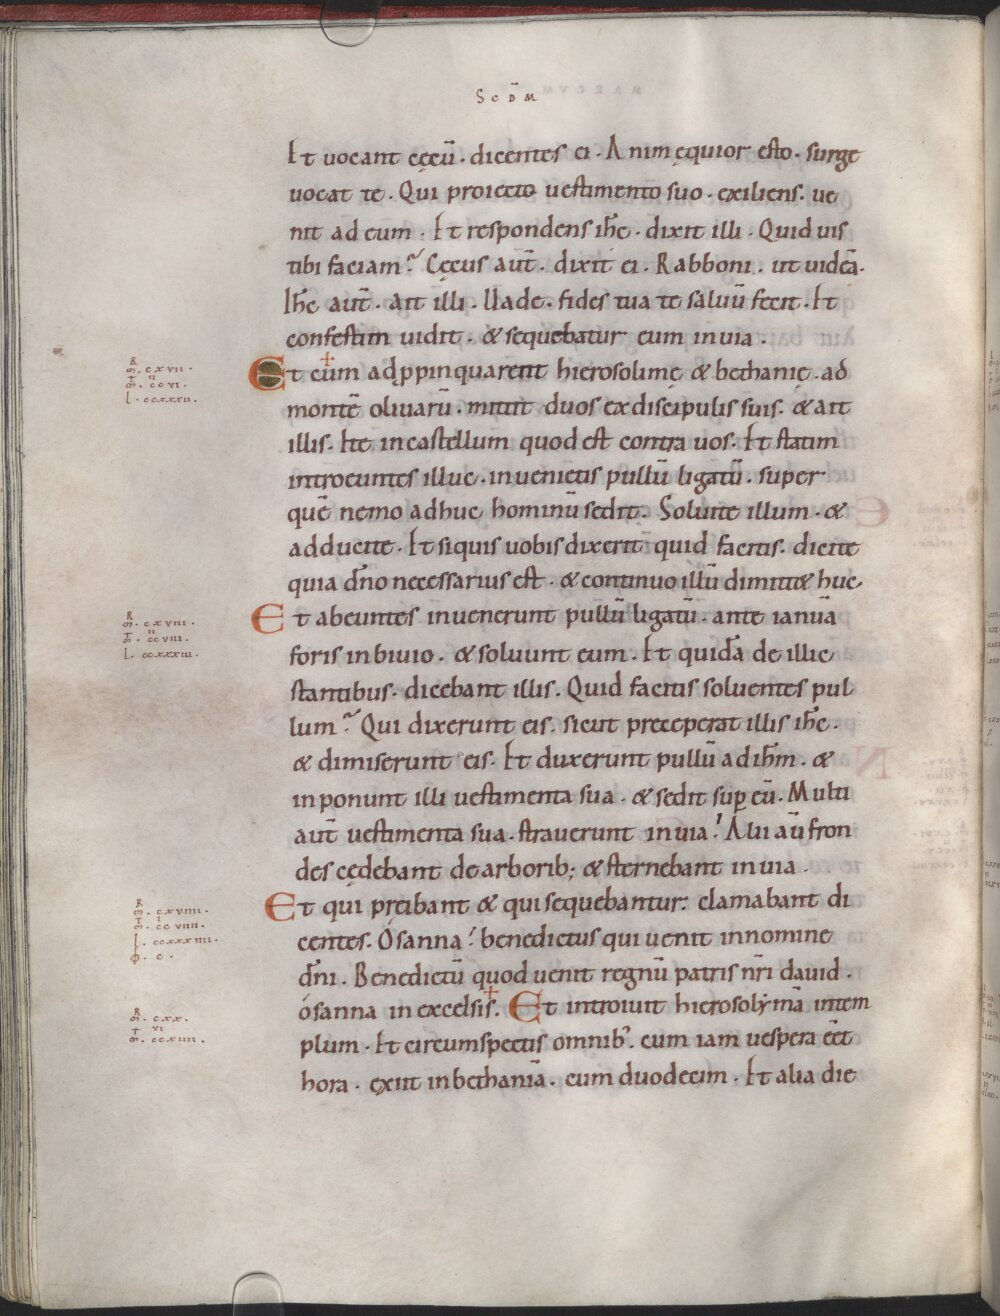 Scd̄M
Et uocant cęcū. dicentes ei. Animęquior esto. surge
uocat te. Qui proiecto uestimento suo. exiliens. ue
nit ad eum. Et respondens ih̄c. dixit illi. Quid uis
tibi faciam? Cęcus aut̄. dixit ei. Rabboni. ut uideā.
Ih̄c aut̄. ait illi. Uade. fides tua te saluū fecit. Et
confestim uidit. & sequebatur eum in uia.
Et cūm adp̱pinquarent hierosolimę & bethanię. ad
montē oliuarū. mittit duos ex discipulis suis. & ait
illis. Ite in castellum quod est contra uos. Et statim
introeuntes illuc. inuenietis pullū ligatū. super
quē nemo adhuc hominū sedit. Soluite illum. &
adducite. Et siquis uobis dixerit quid facitis. dicite
quia dn̄o necessarius est. & continuo illū dimitt& huc.
Et abeuntes inuenerunt pullū ligatū. ante ianuā
foris in biuio. & soluunt eum. Et quidā de illic
stantibus. dicebant illis. Quid facitis soluentes pul
lum? Qui dixerunt eis. sicut preceperat illis ih̄c.
& dimiserunt eis. Et duxerunt pullū ad ih̄m. &
inponunt illi uestimenta sua. & sedit sup̱ eū. Multi
aut̄ uestimenta sua. strauerunt in uia! Alii aū fron
des cędebant de arborib; & sternebant in uia.
Et qui preibant & qui sequebantur: clamabant di
centes. Ósanna! benedictus qui uenit innomine
dn̄i. Benedictū quod uenit regnū patris nr̄i dauid.
ósanna in excelsis. Et introiuit hierosolymā intem
plum. Et circumspectis omnib'. cum iam uespera eēt
hora. exiit in bethaniā. cum duodecim. Et alia die
R
m̄. cxvii.
m̄. ccvi.
L. ccxxxii.
R
m̄. cxviii.
m̄. ccviii.
L. ccxxxiii.
R
m̄. cxviiii.
m̄. ccviiii.
L. ccxxxiiii.
R
m̄. cxx.
m̄. ccxiiii.